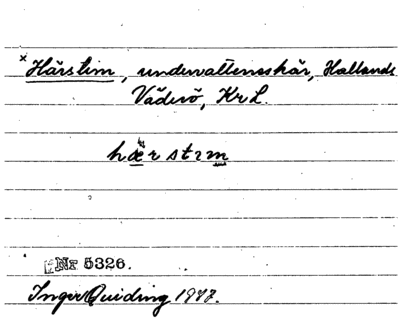 ×Härstim, undervattensskär, Hallands
Väderö, Kr L.
hærstım
Nr 5326.
Inger Quiding 1947.